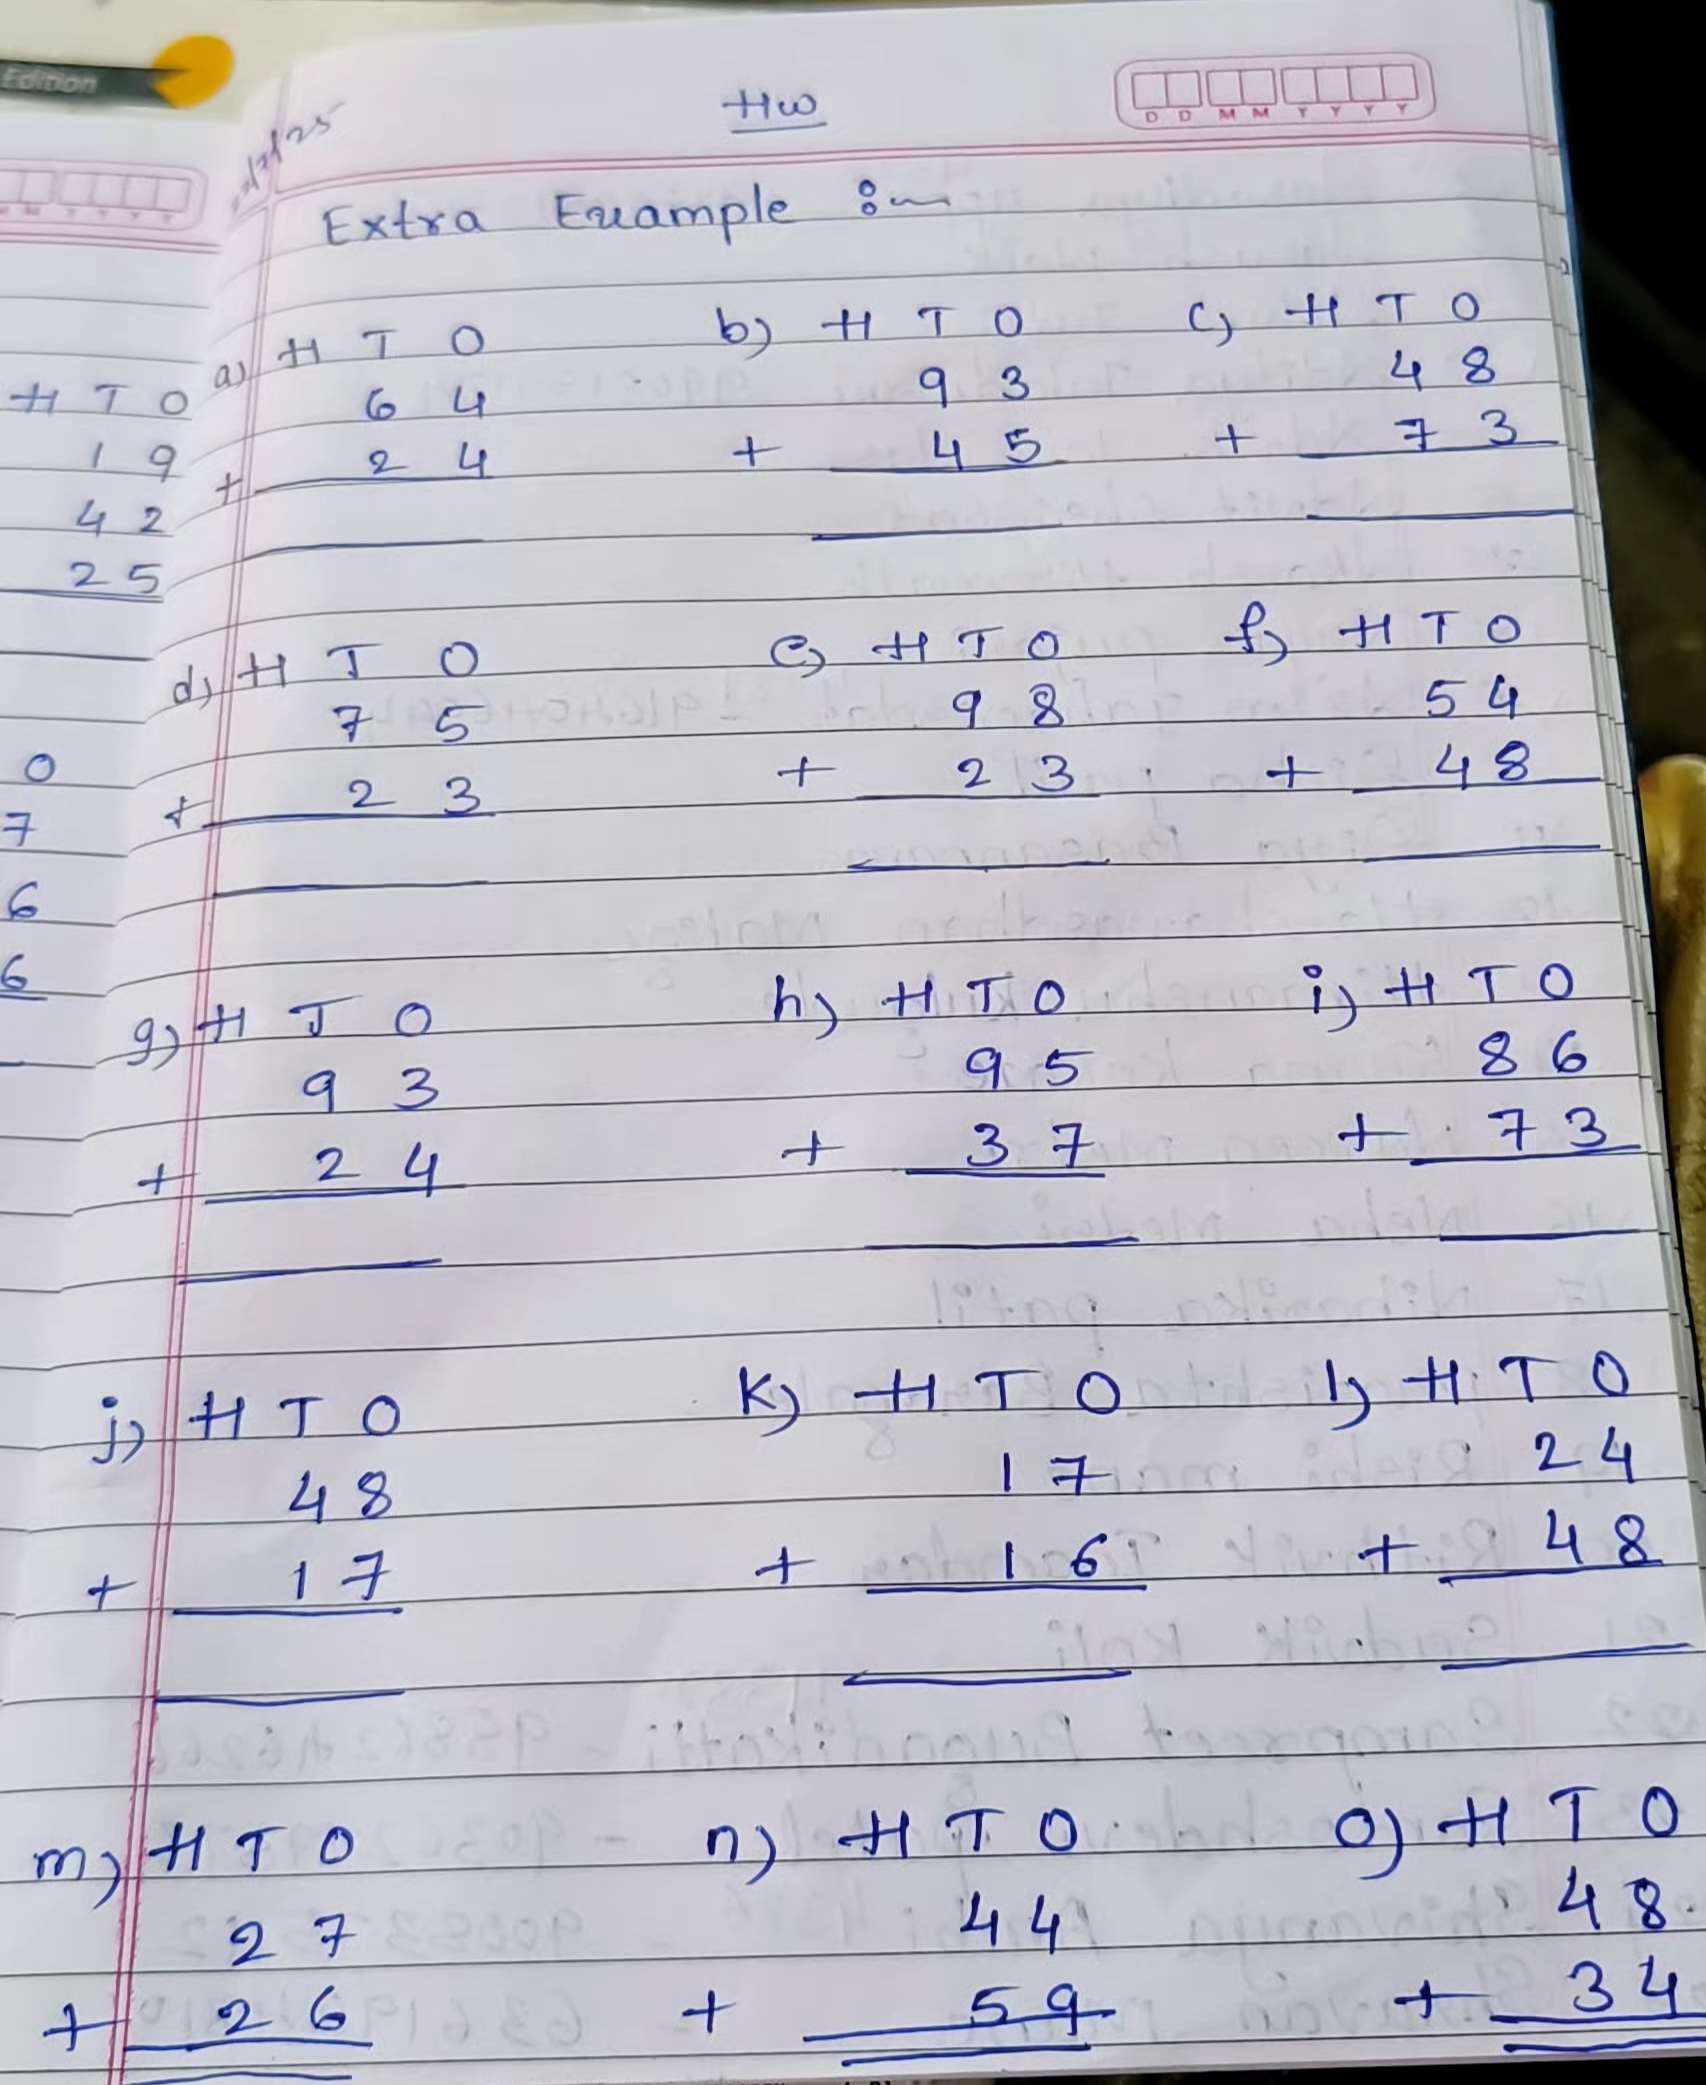 Edition
HW
D D M M Y Y Y Y
Extra Example :-
a) H T O b) H T O c) H T O
6 4 9 3 4 8
+ 2 4 + 4 5 + 7 3
d) H T O e) H T O f) H T O
7 5 9 8 5 4
+ 2 3 + 2 3 + 4 8
g) H T O h) H T O i) H T O
9 3 9 5 8 6
+ 2 4 + 3 7 + 7 3
j) H T O k) H T O l) H T O
4 8 1 7 2 4
+ 1 7 + 1 6 + 4 8
m) H T O n) H T O o) H T O
2 7 4 4 4 8
+ 2 6 + 5 9 + 3 4
H T O
1 9
4 2
2 5
0
7
6
6